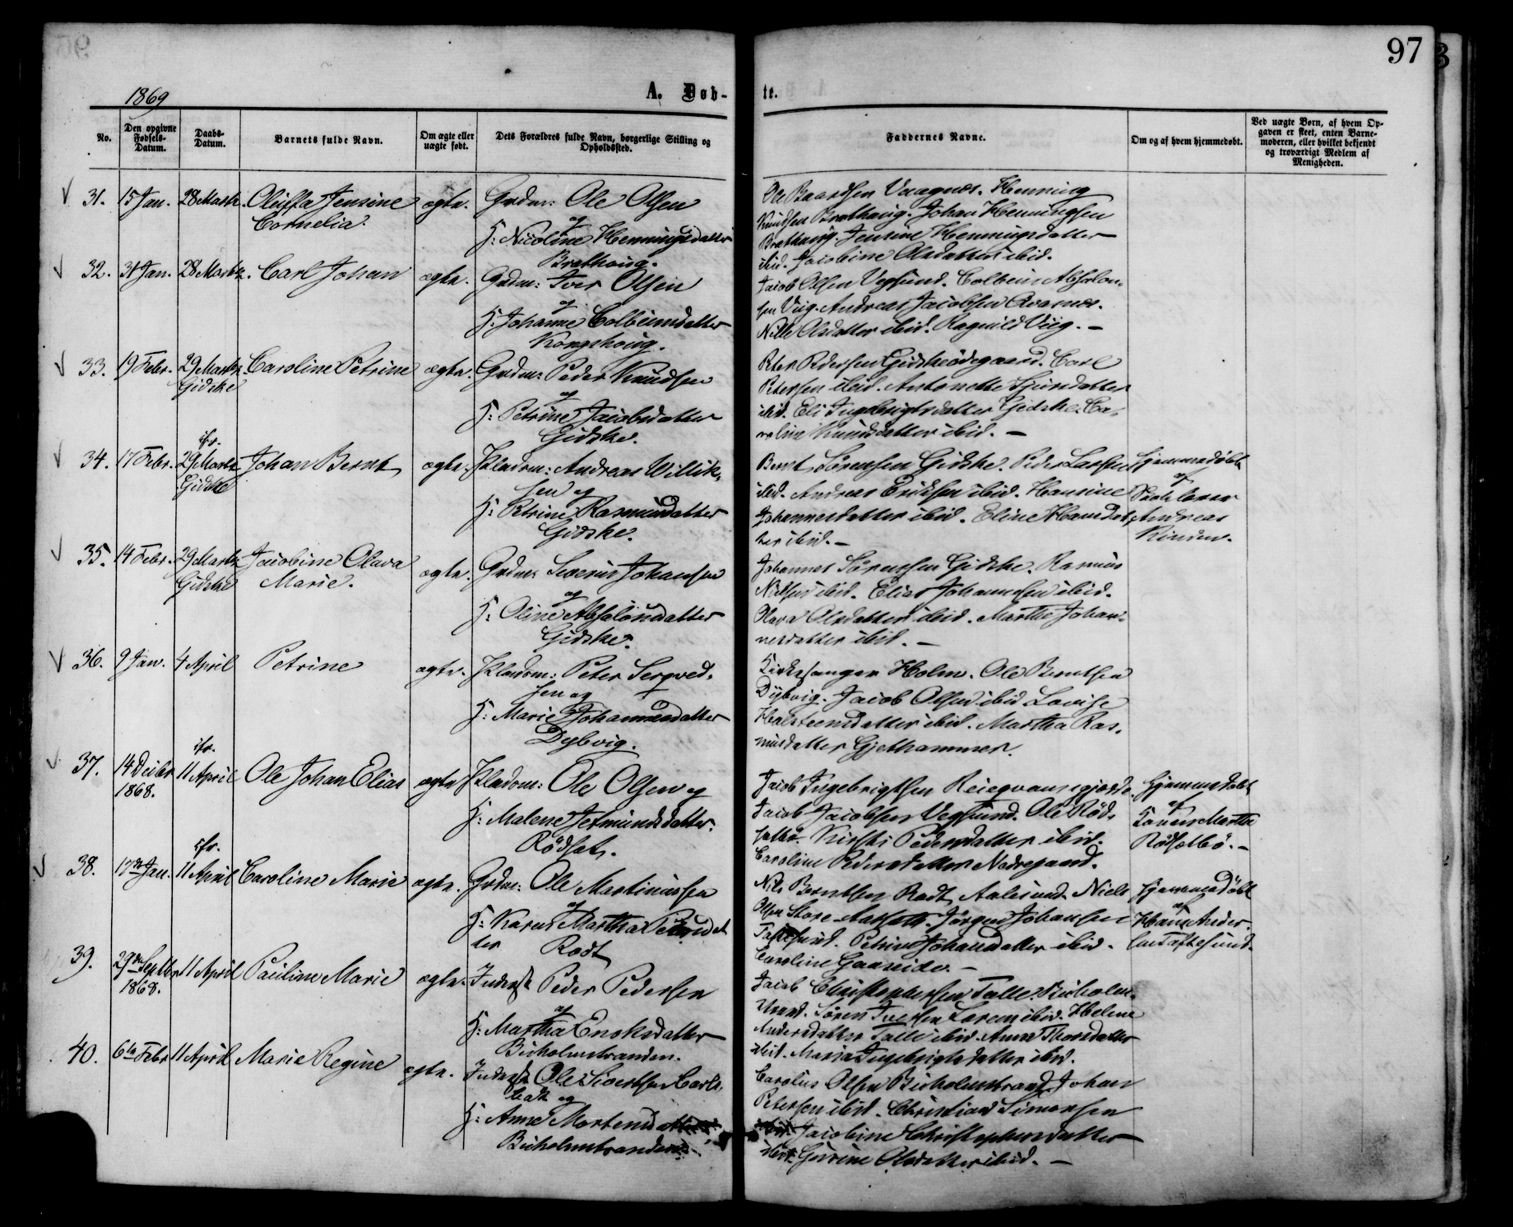 97
1869
A. Døb-
te.
No.
Den opgivne Fødsels-Datum.
Daabs-Datum.
Barnets fulde Navn.
Om ægte eller uægte født.
Dets Forældres fulde Navn, borgerlige Stilling og Opholdssted.
Faddernes Navne.
Om og af hvem hjemmedøbt.
Ved uægte Børn, af hvem Op-
gaven er skeet, enten Barne-
moderen, eller hvilket bekjendt
og troværdigt Medlem af
Menigheden.
31. 15 Jan. 28 Marts. Oluffa Jensine ægte. Grdm: Ole Olsen
Cornelia. og
H: Nicoline Henningsdatter
Brathaug.
Ole Baardsen Vaagnæs. Henning
Knudsen Brathaug. Johan Henningsen
Brathaug. Jensine Henningsdatter
ibid. Jacobine Olsdatter ibid.
32. 31 Jan. 28 Marts. Carl Johan ægte. Grdm: Iver Olsen
og
H: Johanne Colbeinsdatter
Kongshaug.
Jacob Olsen Vegsund. Colbein Absalon-
sen Viig. Andreas Jacobsen
Nille Olsdatter ibid. Ragnild Viig. –
33. 19 Febr. 29 Marts Caroline Petrine ægte. Grdm: Peder Knudsen
Gidske og
H: Petrine Jacobsdatter
Gidske.
Peter Pedersen Gidskeødegaard. Carl
Petersen ibid. Antonette
ibid. Eli Ingebrigtsdatter Gidske. Ca-
roline Knudsdatter ibid. –
34. 17 Febr. 29 Marts Johan Bernt ægte. Pladsm: Andreas Willik-
Gidske sen og
H: Petrine Rasmusdatter
Gidske.
Bernt Sørensen Gidske. Peder Larsen
ibid. Andreas Eriksen ibid. Hansine
Johannesdatter ibid. Eline Hansdat-
ter ibid. –
Hjemmedøbt
af
Skolelærer
Andreas
35. 14 Febr. 29 Marts Jacobine Olava ægte. Grdm: Severin Johansen
Gidske Marie. og
H: Oline Absalonsdatter
Gidske.
Johannes Sørensen Gidske. Rasmus
Nielsen ibid. Elias Johannesen ibid.
Olava Olsdatter ibid. Marthe Johan-
nesdatter ibid. –
36. 9 Jan. 4 April Petrine ægte. Pladsm: Peter
sen og
H: Marie Johannesdatter
Dybvig.
Kirkesanger Holm. Ole Berntsen
Dybvig. Jacob Olsen ibid. Lovise
Halsteensdatter ibid. Martha Ras-
musdatter Gjethammer.
37. 14 Decbr 11 April Ole Johan Elias ægte Pladsm: Ole Olsen og
1868. H: Malene Jetmundsdatter
Rødset.
Jacob Ingebrigtsen
Jacob Jacobsen Vegsund. Ole Rød-
sætbø. Pedersdatter ibid.
Caroline Pedersdatter
Hjemmedøbt
af
Karen Martha
Rødsetbø. –
38. 17de Jan. 11 April Caroline Marie ægte. Grdm: Ole Martinussen
og
H: Karen Martha
ter Rødt
Nils Berntsen Rødt, Aalesund. Niels
Olsen Store Jørgen Johansen
Taftesund. Petrine Johansdatter ibid.
Caroline Gaaseide. –
Hjemmedøbt
af
Hans Ander-
sen Taftesund.
39. 29de Septbr 11 April Pauline Marie ægte. Inderst Peder Pedersen
1868. og
H: Martha Enoksdatter
Buholmstranden.
Jacob Christophersen
Søren Iversen ibid. Helene
Andersdatter ibid. Anne
ibid. Maria Ingebrigtsdatter ibid.
40. 6te Febr 11 April Marie Regine ægte. Inderst Ole Sivertsen
og
H: Anne Mortensdatter
Buholmstranden
Carolus Olsen Buholmstrand, Johan
Petersen ibid. Christian Simonsen
ibid Jacobine Christophersdatter
ibid. Olsdatter ibid. –